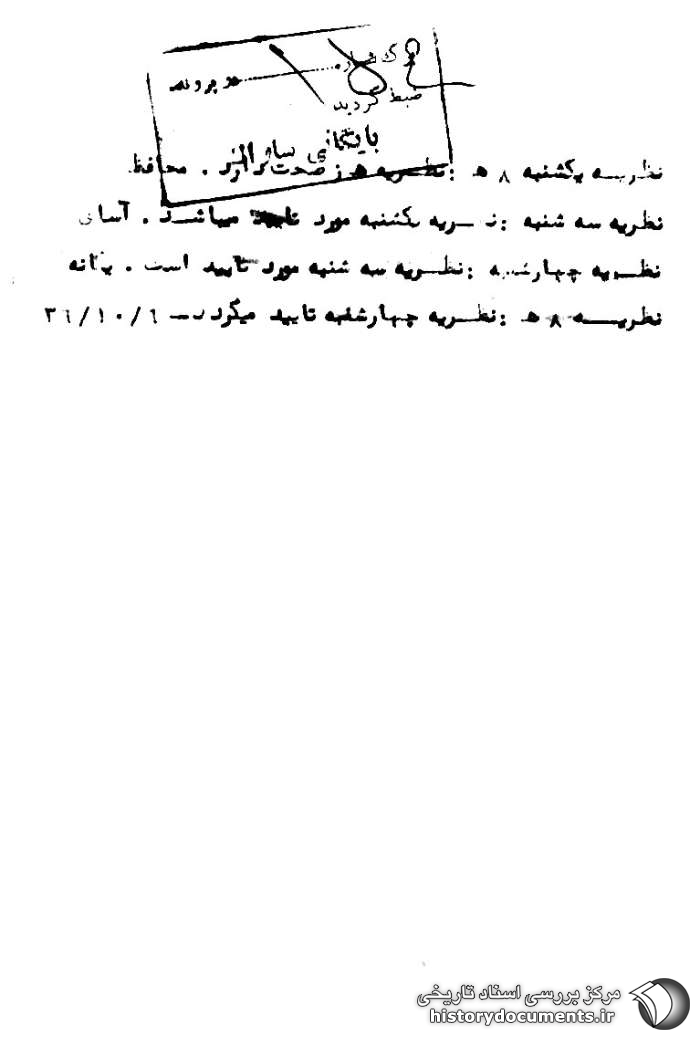 برگ شماره ........... در پرونده
ضبط گردید
بایگانی ساواک
نظریه یکشنبه ۸ هـ : نظریه صحت دارد . محافظ
نظریه سه شنبه : نظریه یکشنبه مورد تایید میباشد .
نظریه چهارشنبه : نظریه سه شنبه مورد تایید است .
نظریه ۸ هـ : نظریه چهارشنبه تایید میگردد
مرکز بررسی اسناد تاریخی
historydocuments.ir